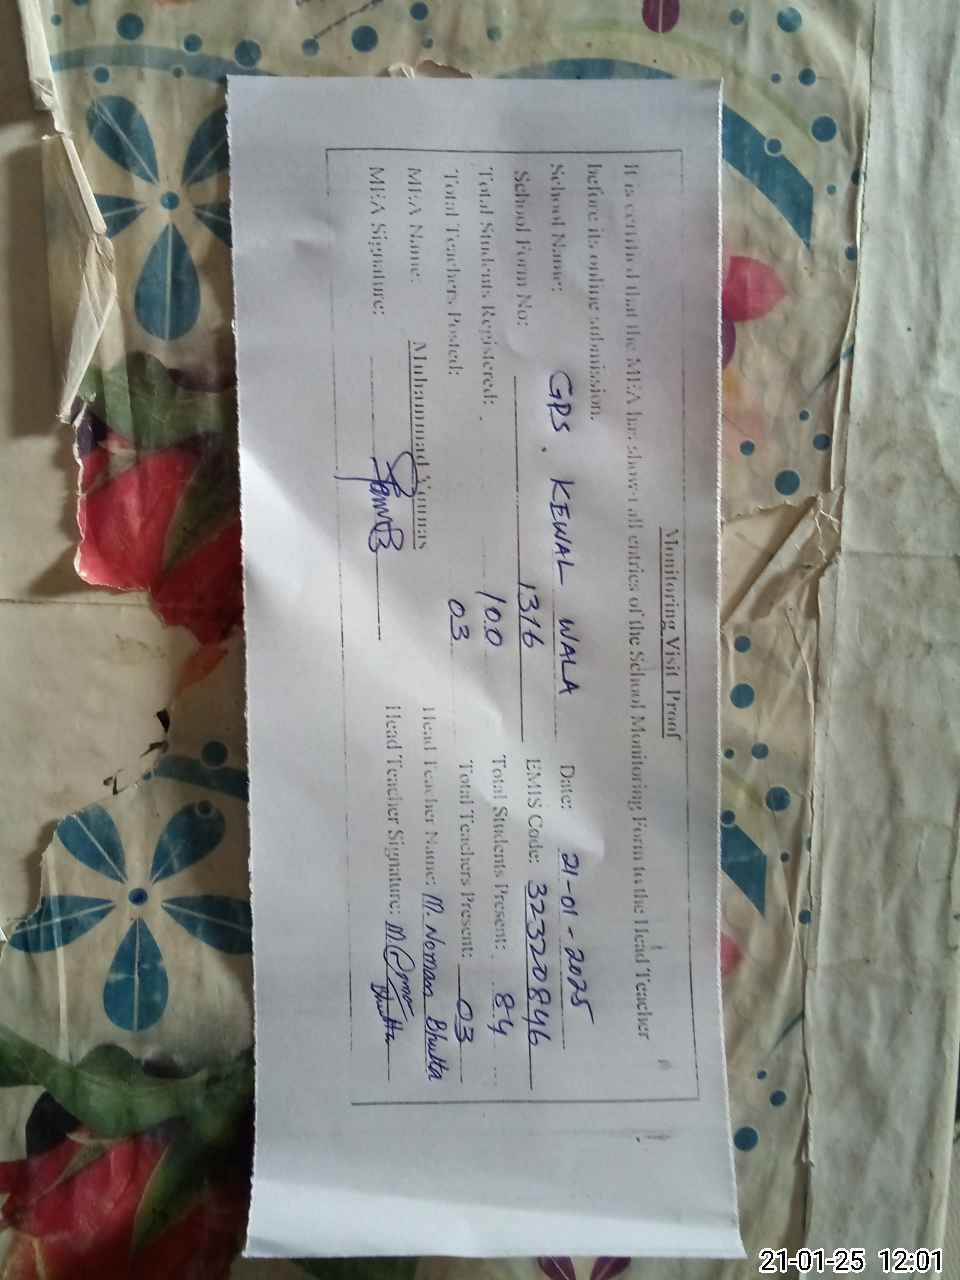 Monitoring Visit Proof
It is certified that the MEA has shown all entries of the School Monitoring Form to the Head Teacher
before its online submission.
School Name: GPS. KEWAL WALA Date: 21-01-2025
School Form No: 1316 EMIS Code: 32320846
Total Students Registered: 100 Total Students Present: 84
Total Teachers Posted: 03 Total Teachers Present: 03
MEA Name: Muhammad Younas Head Teacher Name: M. Noman Bhutta
MEA Signature: Head Teacher Signature: M. Bhutta
21-01-25 12:01